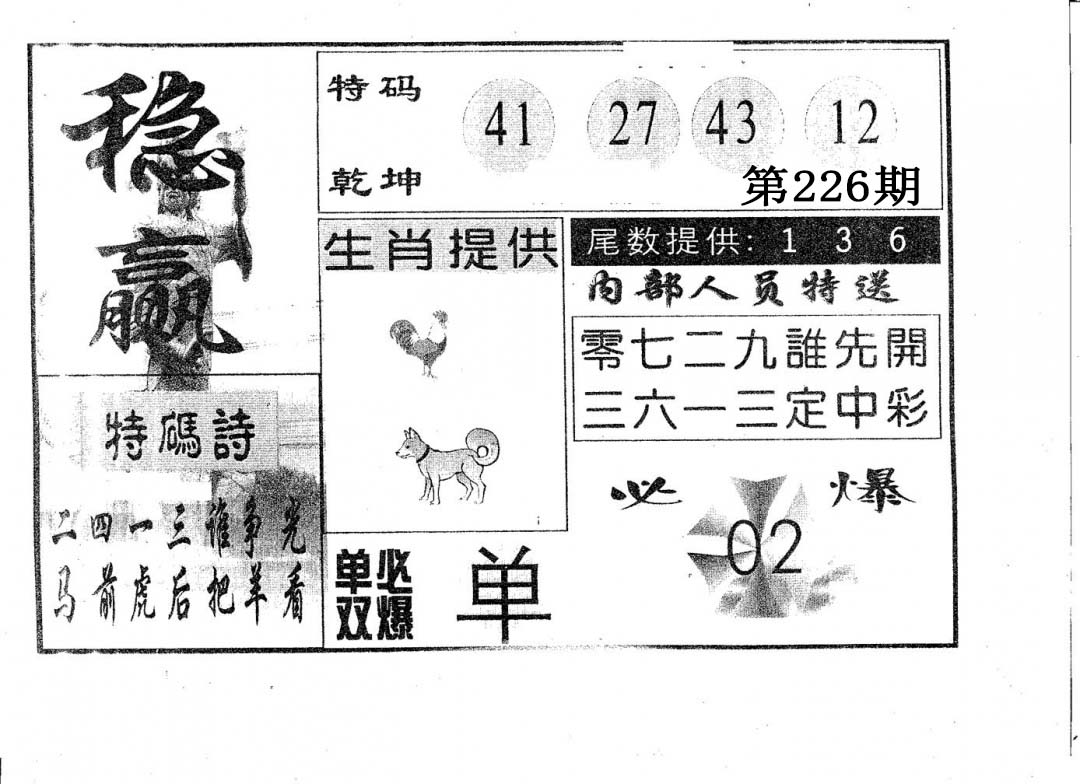 稳赢
特码
乾坤
41 27 43 12
第226期
生肖提供
尾数提供: 1 3 6
内部人员特送
零七二九誰先開
三六一三定中彩
特碼詩
二四一三谁争光
马前虎后把羊看
必爆
02
单双
必爆
单